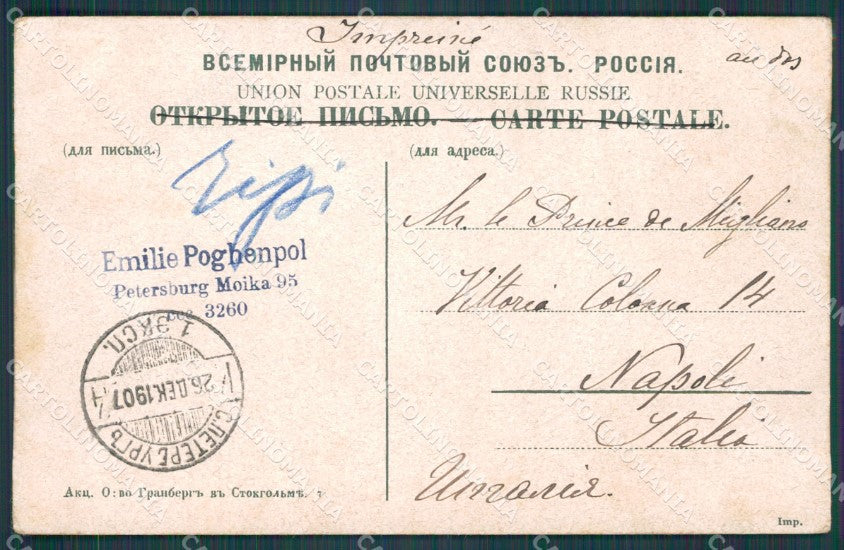 Imprimé
au dos
ВСЕМІРНЫЙ ПОЧТОВЫЙ СОЮЗЪ. РОССІЯ.
UNION POSTALE UNIVERSELLE RUSSIE
ОТКРЫТОЕ ПИСЬМО. — CARTE POSTALE.
(для письма.)
(для адреса.)
Emilie Poghenpol
Petersburg Moika 95
3260
1 ЭКСП.
26.ДЕК.1907
С.ПЕТЕРБУРГЪ
Mr. le Prince de Migliano
Vittoria Colonna 14
Napoli
Italia
Италія.
Акц. О:во Гранбергъ въ Стокгольмѣ.
Imp.
CARTOLINOMANIA